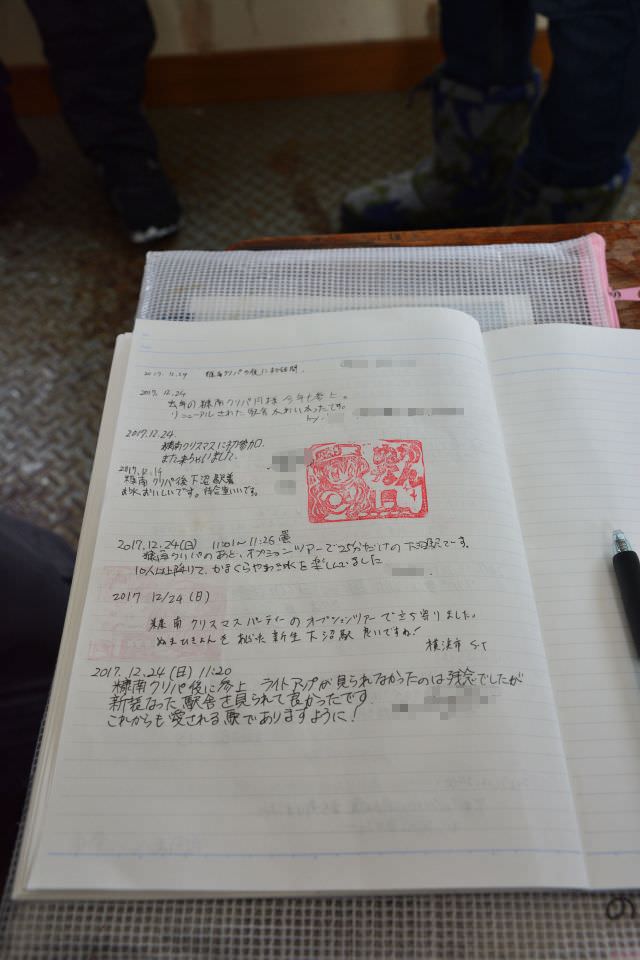 2017.12.24 糠南クリパの後に初訪問.
2017.12.24
去年の糠南クリパ同様 今年も参上。
リニューアルされた駅舎
by.
2017.12.24.
糠南クリスマスに初参加.
また来ちゃいました.
2017.12.24
糠南クリパ後下沼駅着
お水おいしいです。待合室いいです。
2017.12.24(日) 11:01~11:26
糠南クリパのあと、オプションツアーで25分だけの下沼駅です。
10人以上降りて、かまくらやわき水を楽しんいました
2017 12/24 (日)
糠南クリスマスパーティーのオプションツアーで立ち寄りました。
ぬまひきょんを 新生下沼駅 良いですね!
横浜市 S.T
2017.12.24(日) 11:20
糠南クリパ後に参上 ライトアップが見られなかったのは残念でしたが
新装なった駅舎を見られて良かったです
これからも愛される駅でありますように!